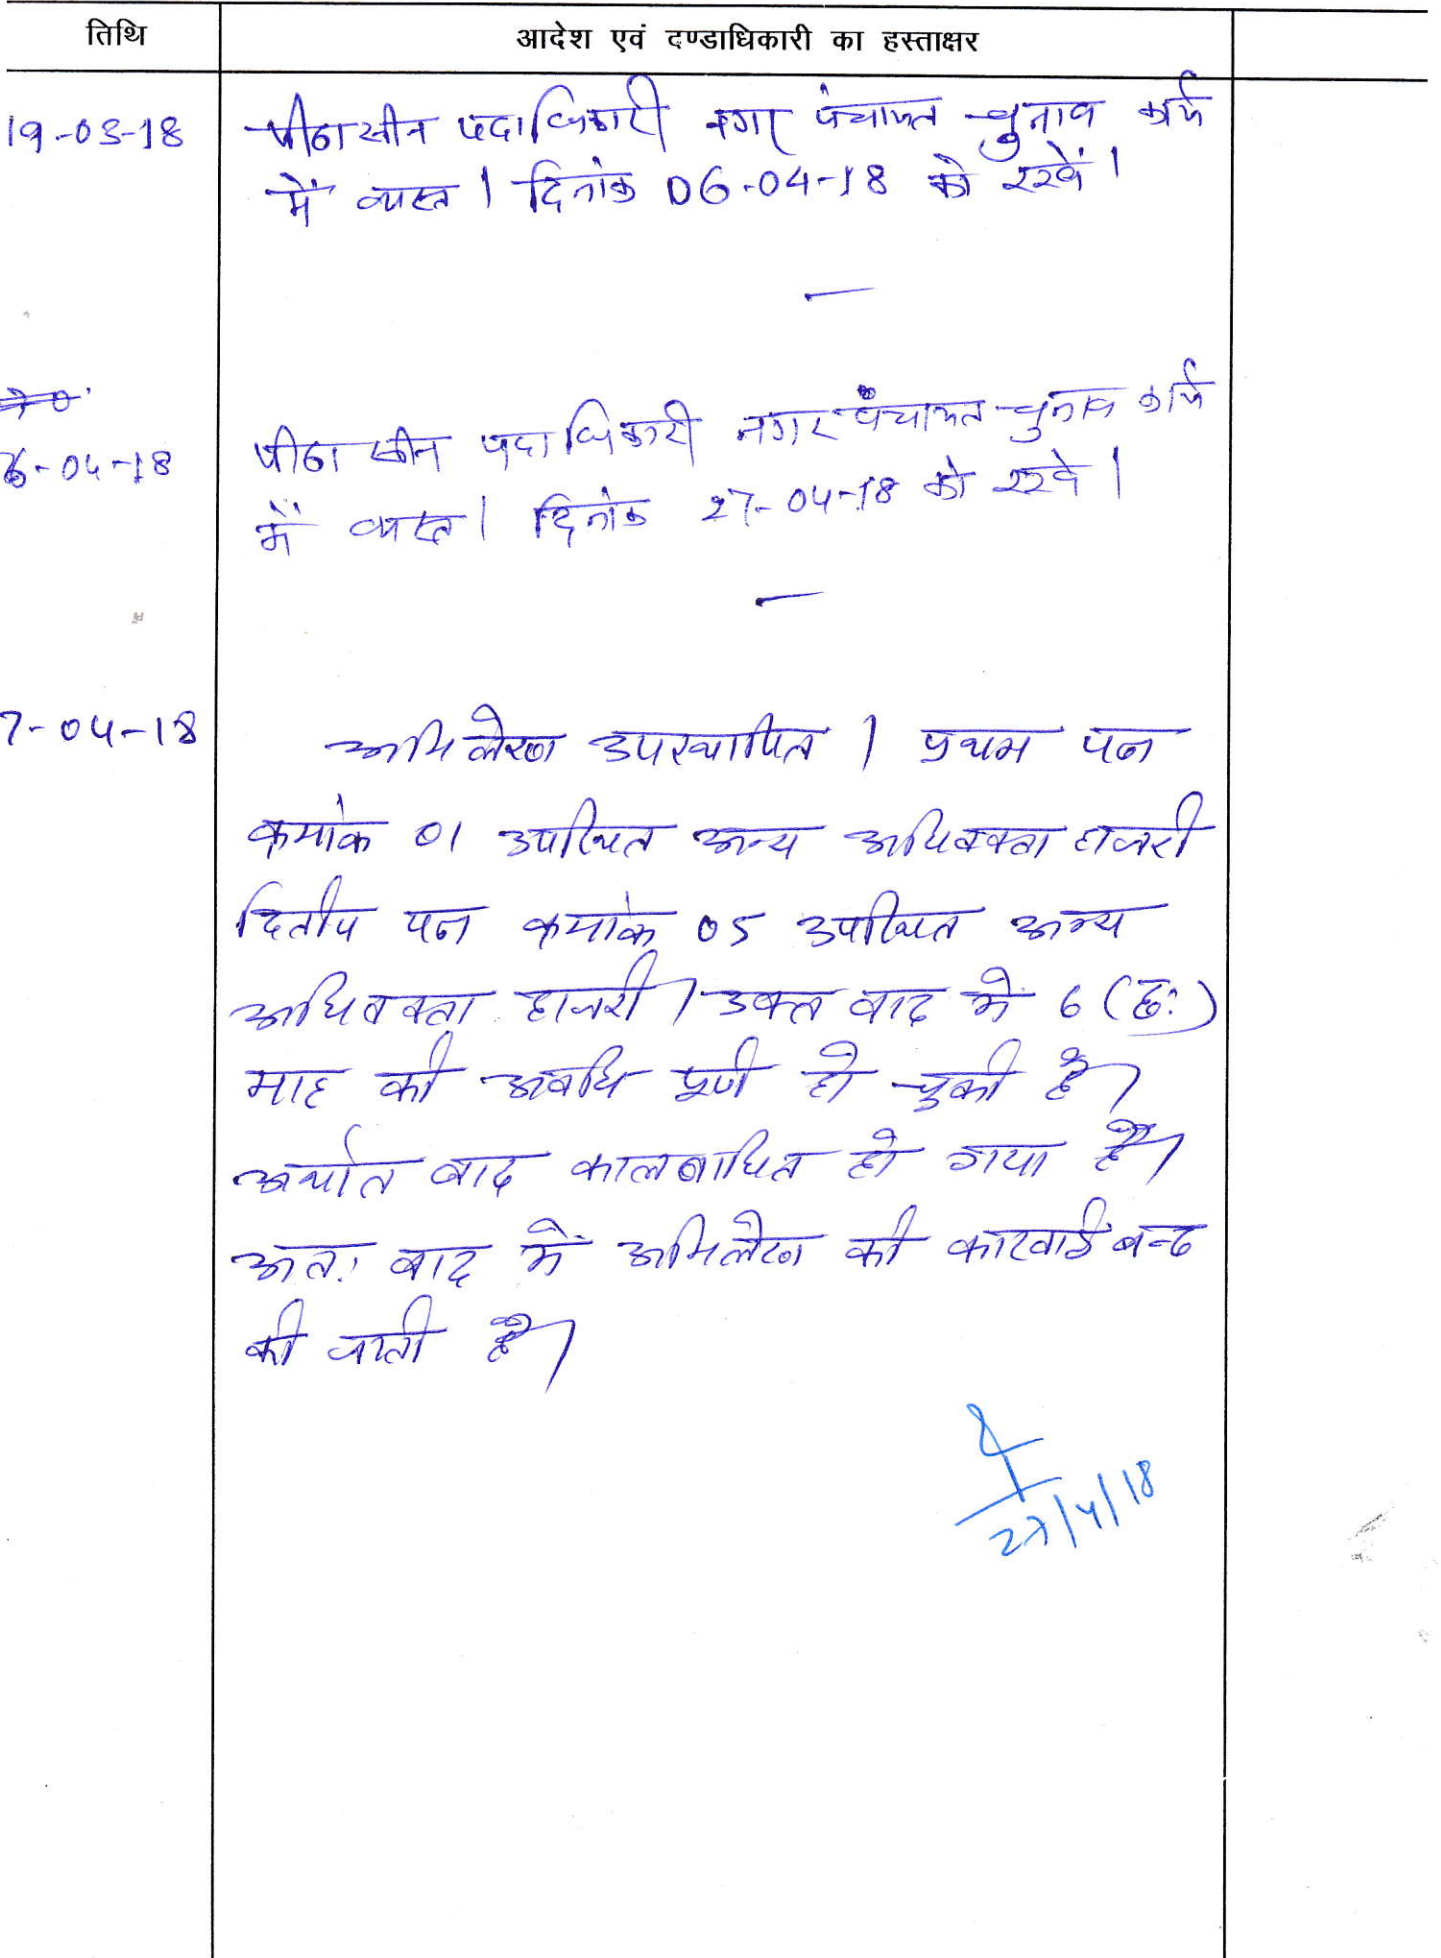 तिथि
आदेश एवं दण्डाधिकारी का हस्ताक्षर
19-03-18
पीठासीन पदाधिकारी नगर पंचायत चुनाव कार्य
में व्यस्त। दिनांक 06-04-18 को रखें।
6-04-18
पीठासीन पदाधिकारी नगर पंचायत चुनाव कार्य
में व्यस्त। दिनांक 27-04-18 को रखें।
7-04-18
अभिलेख उपस्थापित। प्रथम पक्ष
क्रमांक 01 उपस्थित अन्य अधिवक्ता हाजरी
द्वितीय पक्ष क्रमांक 05 उपस्थित अन्य
अधिवक्ता हाजरी। उक्त वाद में 6 (छः)
माह की अवधि पूर्ण हो चुकी है।
अर्थात वाद कालबाधित हो गया है।
अतः वाद में अभिलेख की कारवाई बन्द
की जाती है।
27/4/18